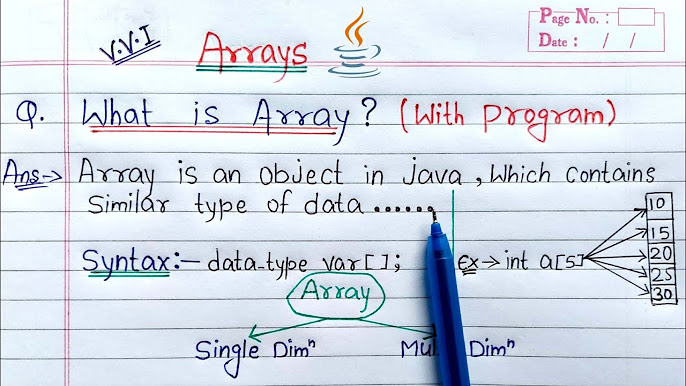 Page No. :
Date : / /
V.V.I
Arrays
Q. What is Array? (With Program)
Ans→ Array is an object in java, which contains
Similar type of data .......
Syntax:- data-type var[];
Ex→ int a[5]
10
15
20
25
30
Array
Single Dimⁿ
Dimⁿ